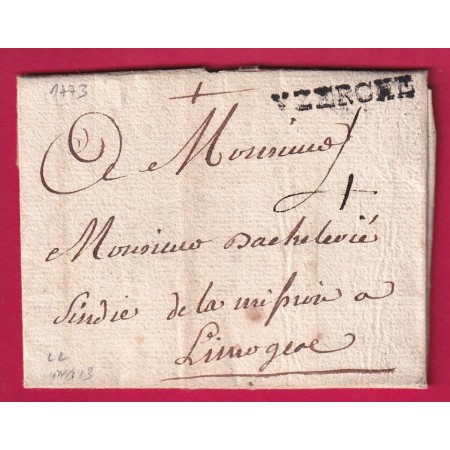 1773
VZERCHE
A Monsieur
Monsieur Bachelerié
Sindic de la mission a
Limoges